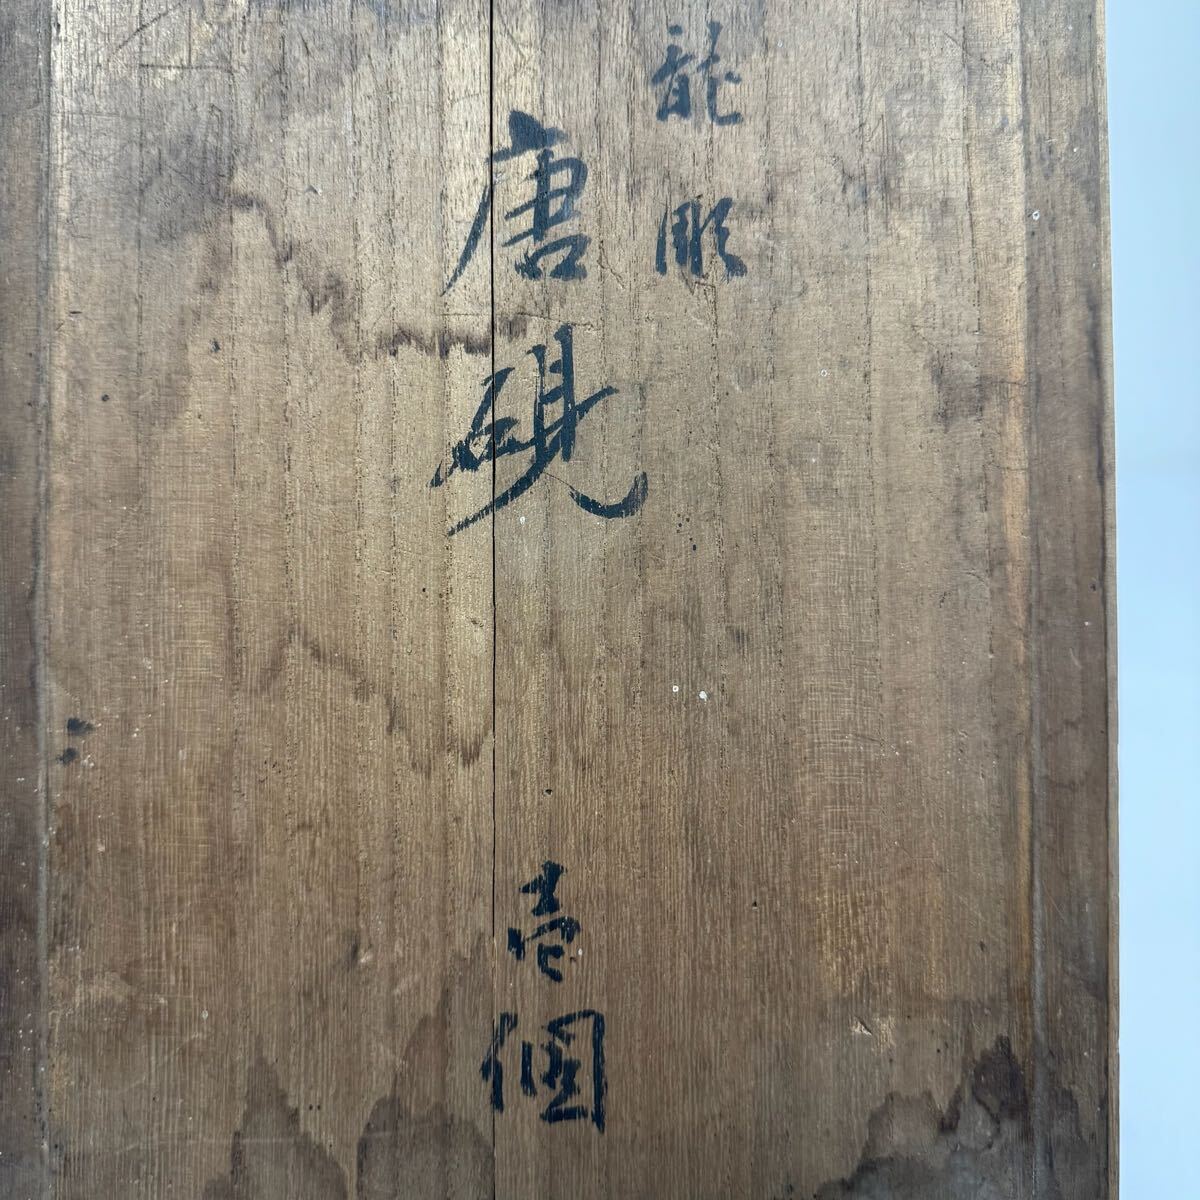 龍彫
唐硯
壱個